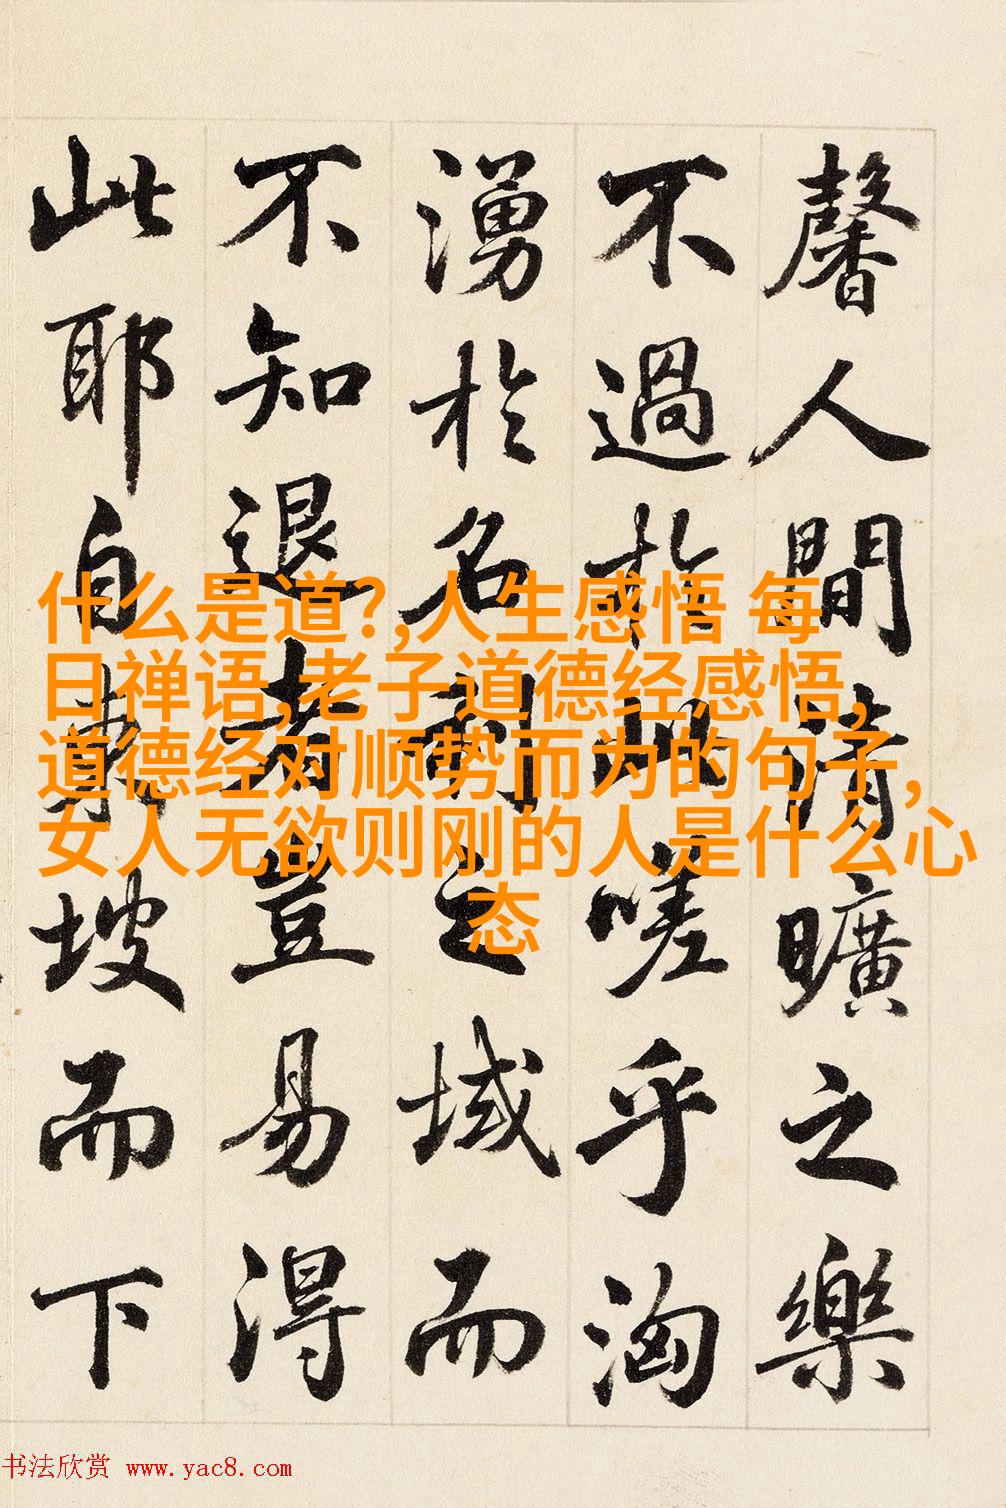 馨人間清曠之樂
不過於此嗟乎洶
湧於名利之域而
不知退者豈易得
此耶自東坡而下
什么是道?,人生感悟 每
日禅语,老子道德经感悟,
道德经对顺势而为的句子,
女人无欲则刚的人是什么心
态
书法欣赏 www.yac8.com